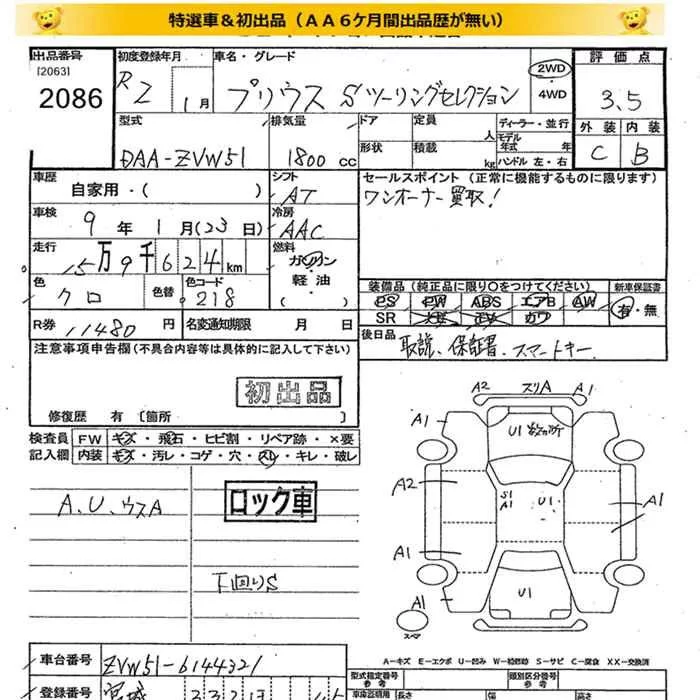 特選車&初出品（AA6ケ月間出品歴が無い）
出品番号 初度登録年月 車名・グレード 評価点
[2063]
2086 R2 1月 プリウス Sツーリングセレクション 2WD・4WD 3.5
外装 内装
C B
型式 排気量 ドア 定員 人 ディーラー・並行
DAA-ZVW51 1800 cc 形状 積載 kg モデル年式 年 ハンドル 左・右
車歴 シフト セールスポイント（正常に機能するものに限ります）
自家用・( ) AT ワンオーナー買取!
車検 冷房
9年 1月(23日) AAC
走行 燃料
15万9千624km ガソリン・軽油
色 色替 色コード 装備品（純正品に限り○をつけてください） 新車保証書
クロ 218 PS PW ABS エアB AW 有・無
SR カワ
R券 11480円 名変通知期限 月 日 後日品
取説、保証書、スマートキー
注意事項申告欄（不具合内容等は具体的に記入して下さい）
初出品
修復歴 有〔箇所 〕
検査員 FW キズ・飛石・ヒビ割・リペア跡・×要
記入欄 内装 キズ・汚レ・コゲ・穴・スレ・キレ・破レ
A2 スリA A1
A1 U1 数か所
A2 S1 A1 U1 A1
A1
A1 U1
スペア
A、U、ウスA ロック車
下回りS
A-キズ E-エクボ U-凹み W-補修跡 S-サビ C-腐食 XX-交換済
車台番号 ZVW51-6144321
登録番号 宮城
型式指定番号 参考 類別区分番号 参考
車庫証明用 長さ 幅 高さ